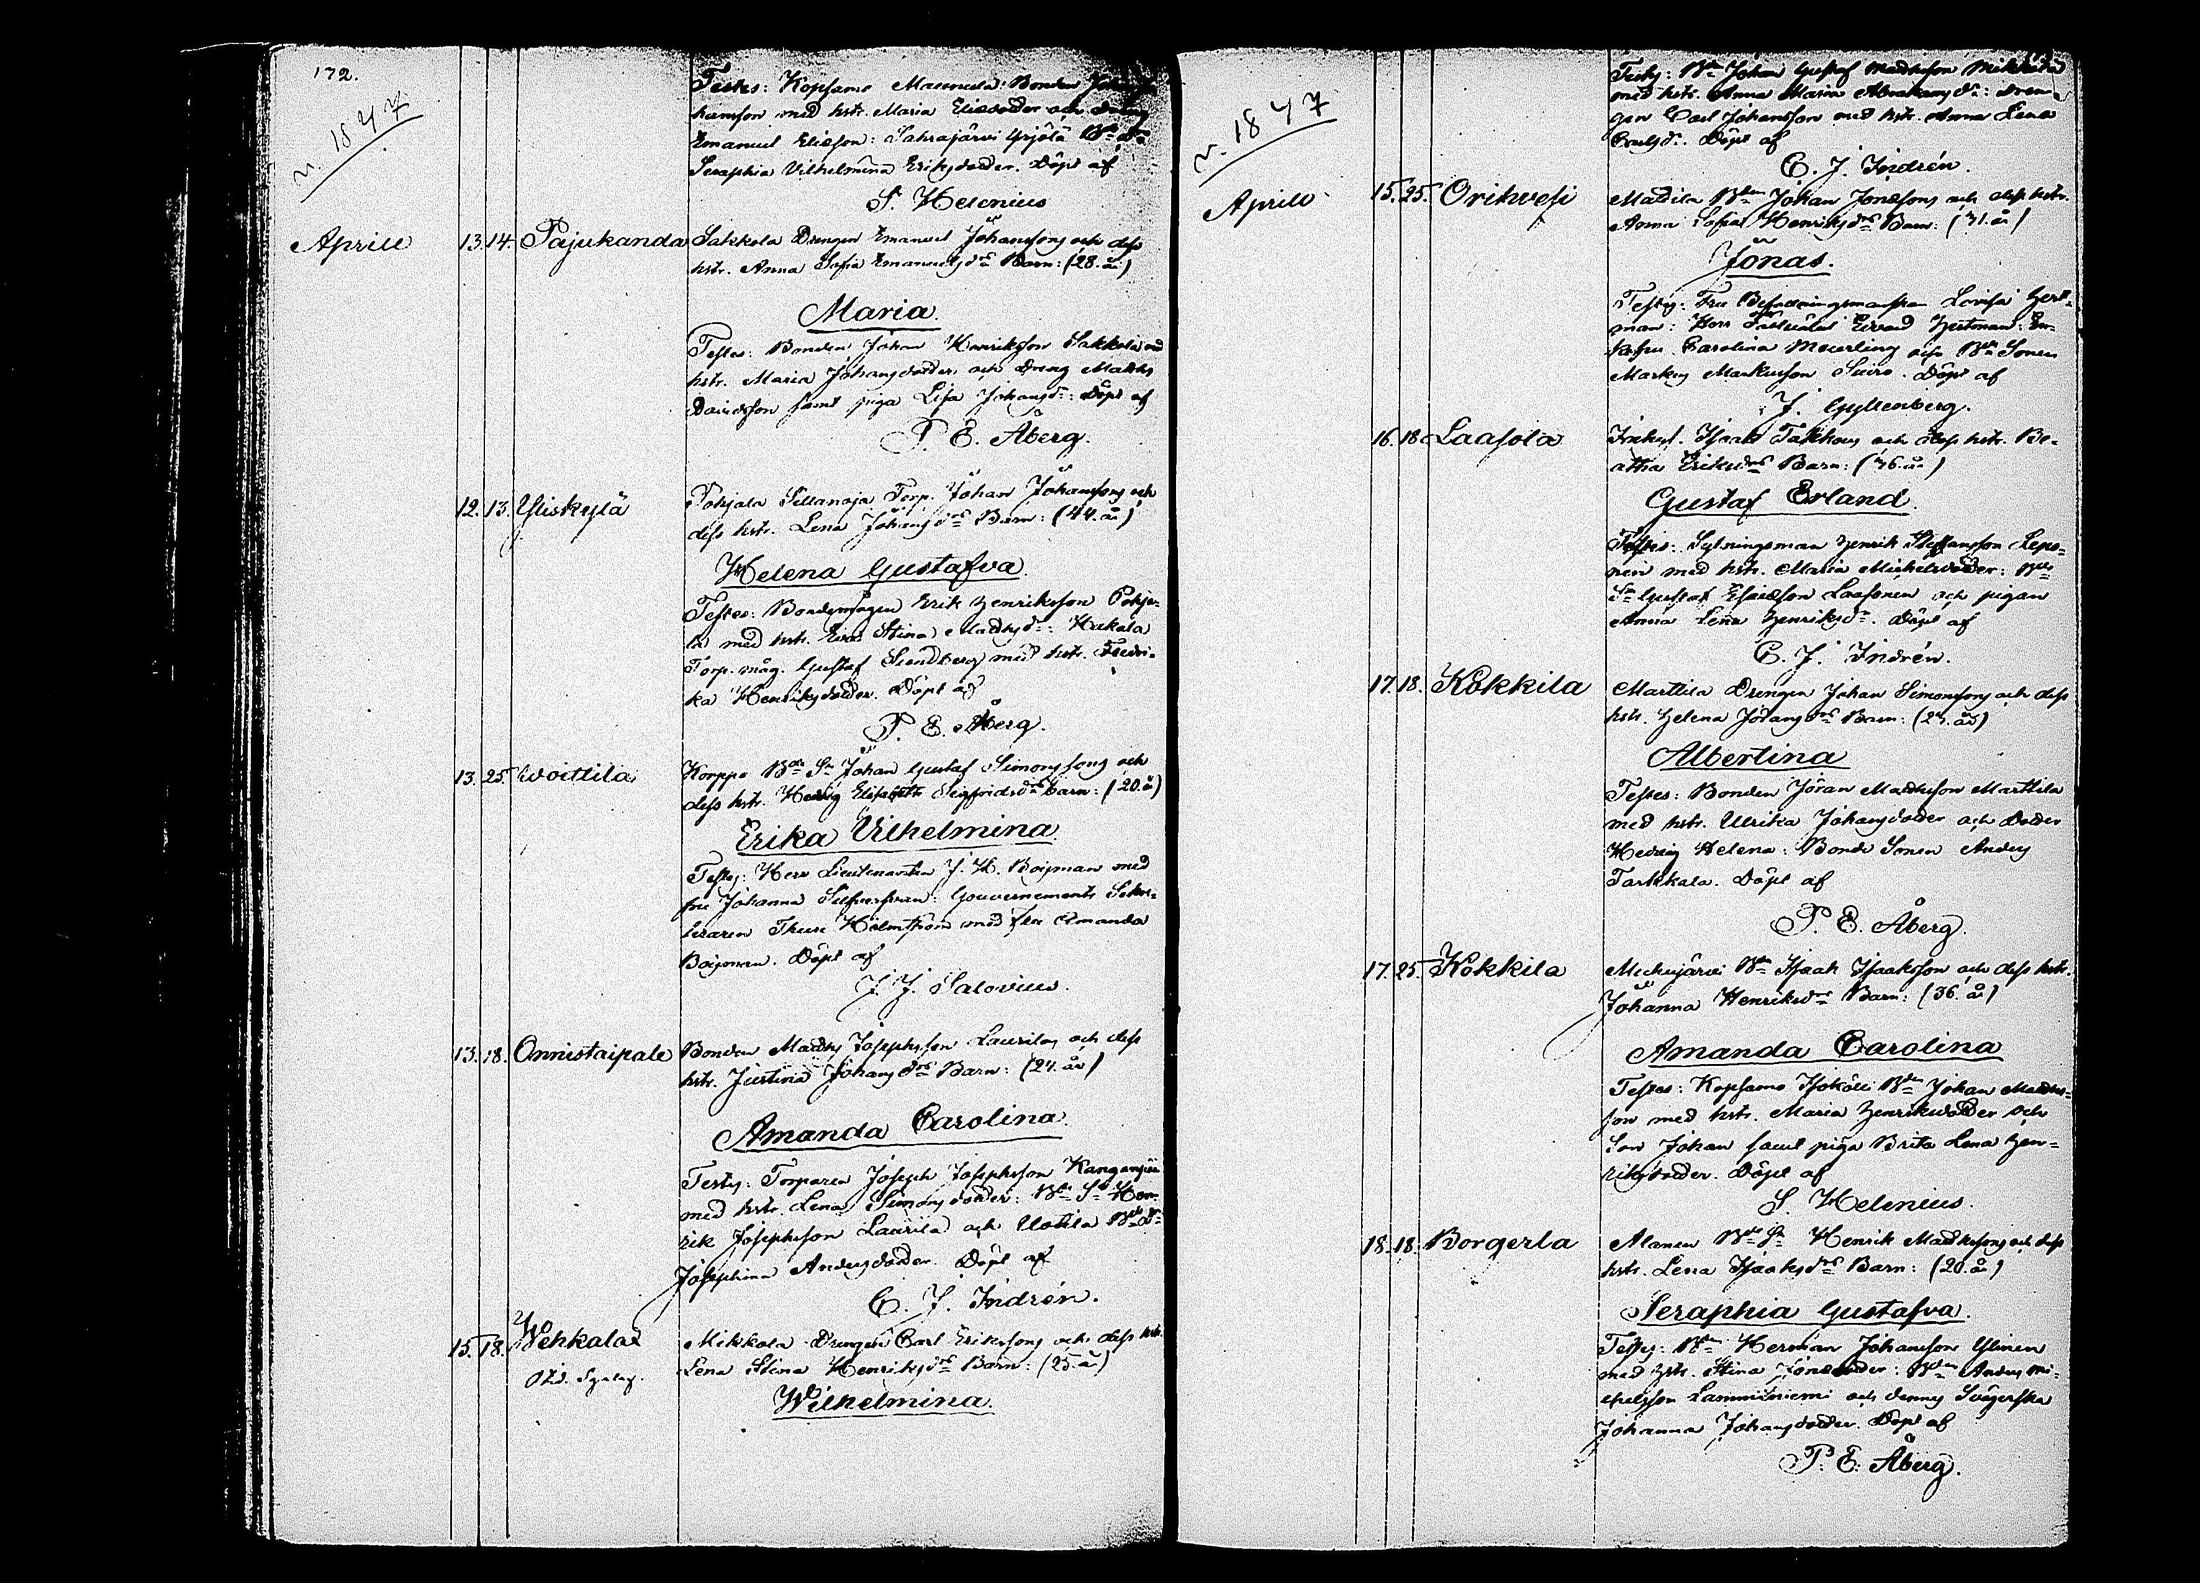 172.
n. 1847
Testes: Kopsamo Mannila: Bonden
hansson med hstr. Maria Eliædotter och Dreng
Emanuel Eliæson: Sahrajärvi Yrjölä
Seraphia Vilhelmina Eriksdotter. Döpt af
S. Helenius
Aprill 13. 14. Pajukanda Sakkola Drengen Emanuel Johanssons och dess
hstr. Anna Sofia Emanuelsdrs Barn: (28. år)
Maria
Testes: Bonden Johan Henriksson Sakkola med
hstr. Maria Johansdotter och Dreng Matths
Davidsson samt piga Lisa Johansdr: Döpt af
P. E. Åberg.
12. 13. Yliskylä Pohjala Sillanoja Torp. Johan Johanssons och
dess hstr. Lena Johansdrs Barn: (44. år)
Helena Gustafva
Testes: Bondemågen Erik Henriksson Pohja-
la med hstr. Eva Stina Mattsdr: Hukala
Torp. måg. Gustaf Sundberg med hstr. Fredri-
ka Henriksdotter. Döpt af
P. E. Åberg.
13. 25. Woittila Korppo Bde Sn Johan Gustaf Simonssons och
dess hstr. Hedvig Elisabeth Sigfridsdrs Barn: (20. år)
Erika Vilhelmina
Testes: Herr Lieutenanten J. H. Boijman med
fru Johanna Silfversvan: Gouvernements Sekre-
teraren Thure Holmström med fru Amanda
Boijman. Döpt af
J. J. Salovius.
13. 18. Onnistaipale Bonden Matths Josephsson Laurilas och dess
hstr. Justina Johansdrs Barn: (24. år)
Amanda Carolina
Testes: Torparen Joseph Josephsson
med hstr. Lena Simonsdotter: Bde Sn Hen-
rik Josephsson Laurila och Uotila Bde Dr
Josephina Andersdotter. Döpt af
C. J. Indrén.
15. 18. Wehkalax Mikkola Drengen Carl Erikssons och dess hstr.
Lena Stina Henriksdrs Barn: (25. år)
Wilhelmina.
n. 1847
Testes: Bdn Johan Gustaf Mattsson Mikkola
med hstr. Anna Maria Abrahamsdr: Dren-
gen Carl Johansson med hstr. Anna Lena
Döpt af
C. J. Indrén.
Aprill 15. 25. Orihvesi Mattila Bden Johan Jonæsons och dess hstr.
Anna Sofia Henriksdrs Barn: (31. år)
Jonas.
Testes: Fru Befallningsmanskan Lovisa Hert-
man: Herr Edvard Hertman: En-
kefru Carolina Meurling och Bde Sonen
Markus Markusson Suiro. Döpt af
J. Gyllenberg.
16. 18. Laasola Inhys. Isaak Takkous och dess hstr. Be-
atha Eriksdrs Barn: (36. år)
Gustaf Erland.
Testes: Sytningsman Henrik Steffansson Lepo-
med hstr. Maria Michelsdotter: Bde
Sn Gustaf Esaiæson Laasonen och pigan
Anna Lena Henriksdr. Döpt af
C. J. Indrén.
17. 18. Kokkila Marttila Drengen Johan Simonssons och dess
hstr. Helena Göransdrs Barn: (27. år)
Albertina
Testes: Bonden Jöran Mattsson Marttila
med hstr. Ulrika Johansdotter och Dotter
Hedvig Helena: Bonde Sonen Anders
Tarkkala. Döpt af
P. E. Åberg.
17. 25. Kokkila Bdn Isaak Isaksson och dess hstr.
Johanna Henriksdrs Barn: (36. år)
Amanda Carolina
Testes: Kopsamo Isokölli Bden Johan Matts-
son med hstr. Maria Henriksdotter och
Son Johan samt piga Brita Lena Hen-
riksdotter. Döpt af
S. Helenius.
18. 18. Borgerla Alanen Bde Sn Henrik Mattssons och dess
hstr. Lena Isaaksdrs Barn: (20. år)
Seraphia Gustafva.
Testes: Bdn Herman Johansson Ylinen
med hstr. Stina Jonædotter: Bden Anders Mi-
chelsson Lamminniemi och dennes Svägerska
Johanna Johansdotter. Döpt af
P. E. Åberg.